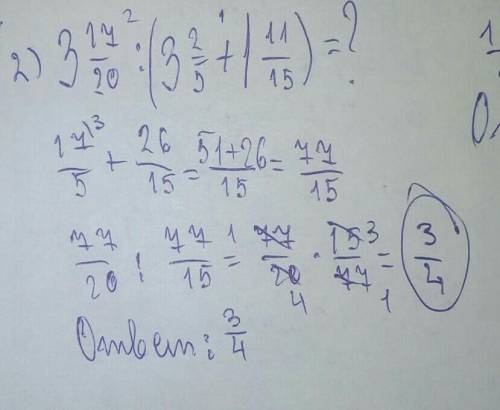 2) 3 17/20 : (3 2/5 + 1 11/15) = ?
2 1
17/5 + 26/15 = 51+26/15 = 77/15
3
77/20 : 77/15 = 77/20 · 15/77 = 3/4
1 3 4 1
Ответ: 3/4